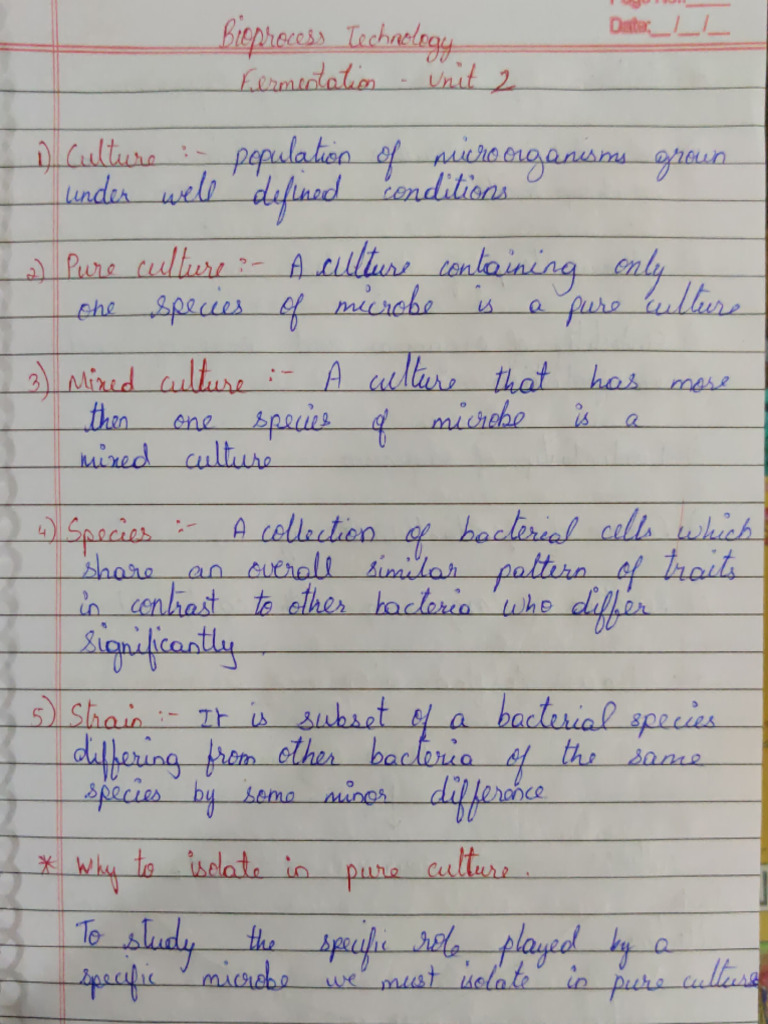 Page No.:____
Date:__/__/__
Bioprocess Technology
Fermentation - Unit 2
1) Culture :- population of microorganisms grown
under well defined conditions
2) Pure culture :- A culture containing only
one species of microbe is a pure culture
3) Mixed culture :- A culture that has more
then one species of microbe is a
mixed culture
4) Species :- A collection of bacterial cells which
share an overall similar pattern of traits
in contrast to other bacteria who differ
significantly.
5) Strain :- It is subset of a bacterial species
differing from other bacteria of the same
species by some minor difference
* Why to isolate in pure culture.
To study the specific role played by a
specific microbe we must isolate in pure culture